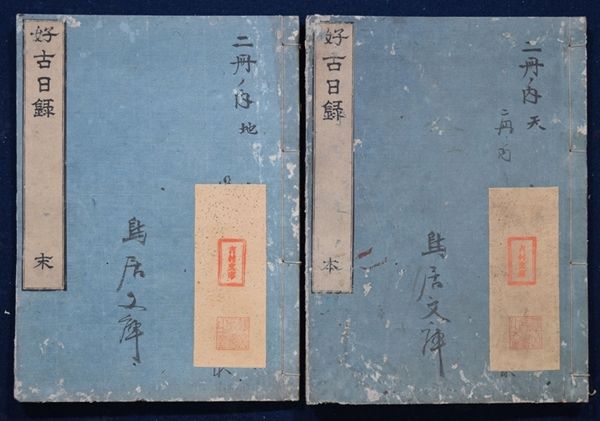 好古日録
末
二冊ノ内
地
鳥居文庫
好古日録
本
二冊ノ内
天
二冊内
鳥居文庫